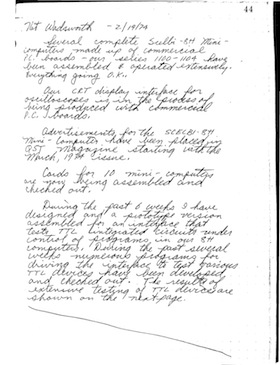 44
Nat Wadsworth - 2/19/74
Several complete Scelbi-8H Mini-
computers, made up of commercial
P.C. boards - our series 1100-1104 have
been assembled & operated extensively.
Everything going O.K.
Our CRT display interface for
oscilloscopes is in the process of
being produced with commercial
P.C. boards.
Advertisements for the SCELBI-8H
Mini-Computer have been placed in
QST Magazine starting with the
March, 1974 issue.
Cards for 10 mini-computers
are now being assembled and
checked out.
During the past 6 weeks I have
designed and a prototype version
assembled for an interface that
tests TTL integrated circuits under
control of programs in our 8H
computer. During the past several
weeks numerous programs for
driving the interface to test various
TTL devices have been developed
and checked out. The results of
extensive testing of TTL devices are
shown on the next page.